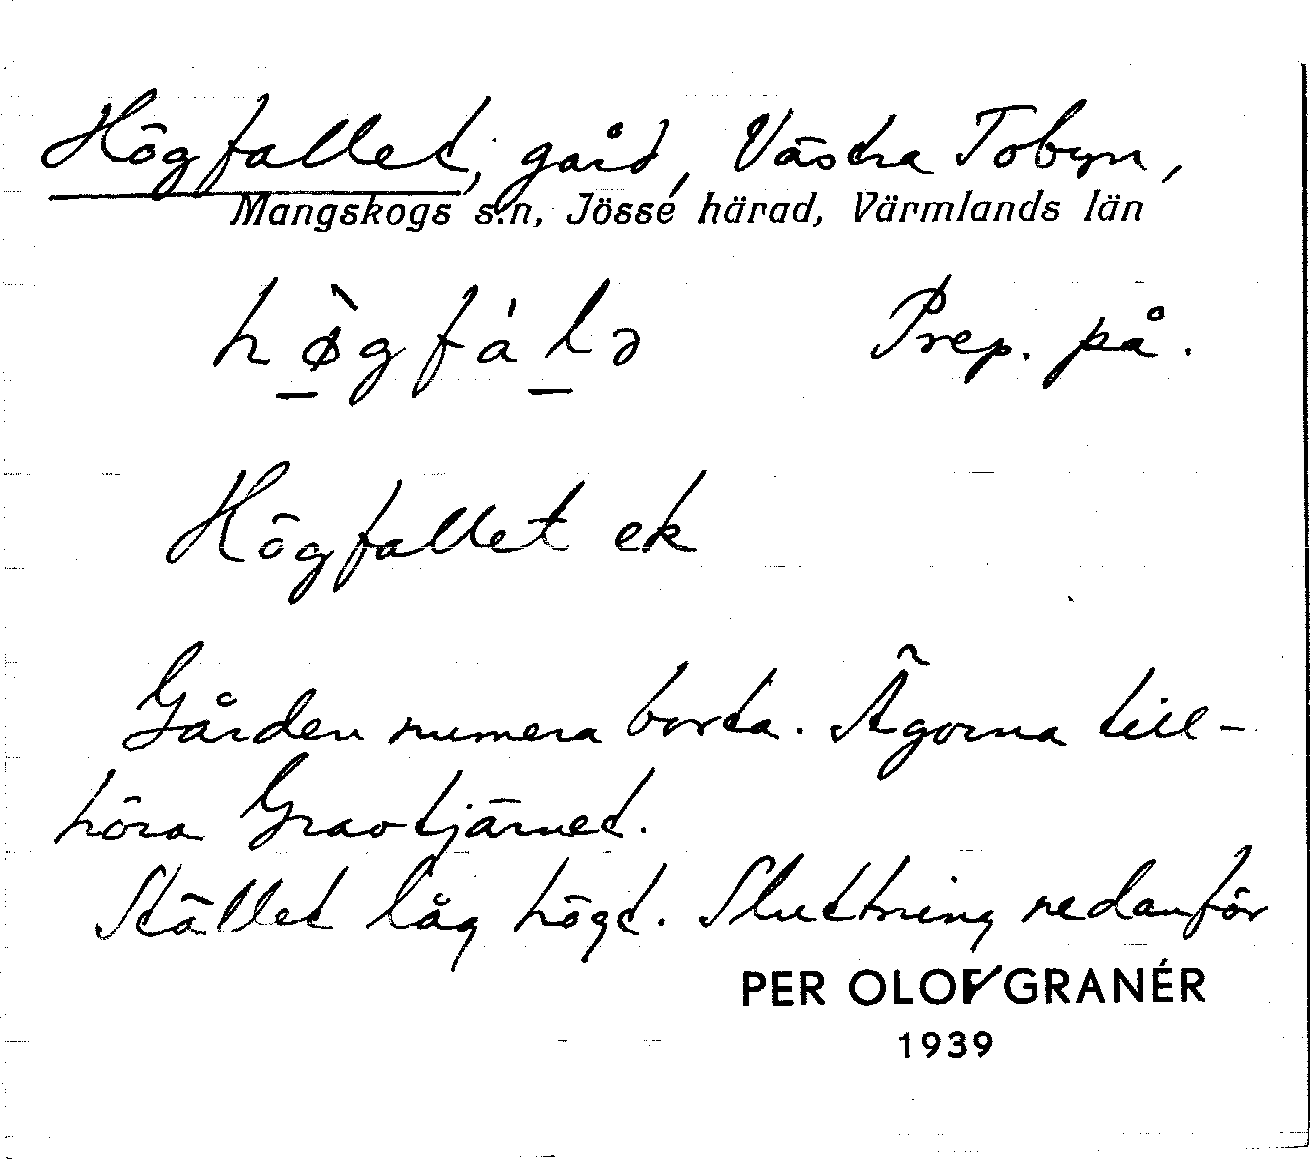 Högfallet, gård, Västra Tobyn,
Mangskogs s:n, Jösse härad, Värmlands län
hø̀gfá lə Prep. på.
Högfallet ek
Gården numera borta. Ägorna till-
höra Gravtjärnet.
Stället låg högt. Sluttning nedanför
PER OLOF GRANÉR
1939